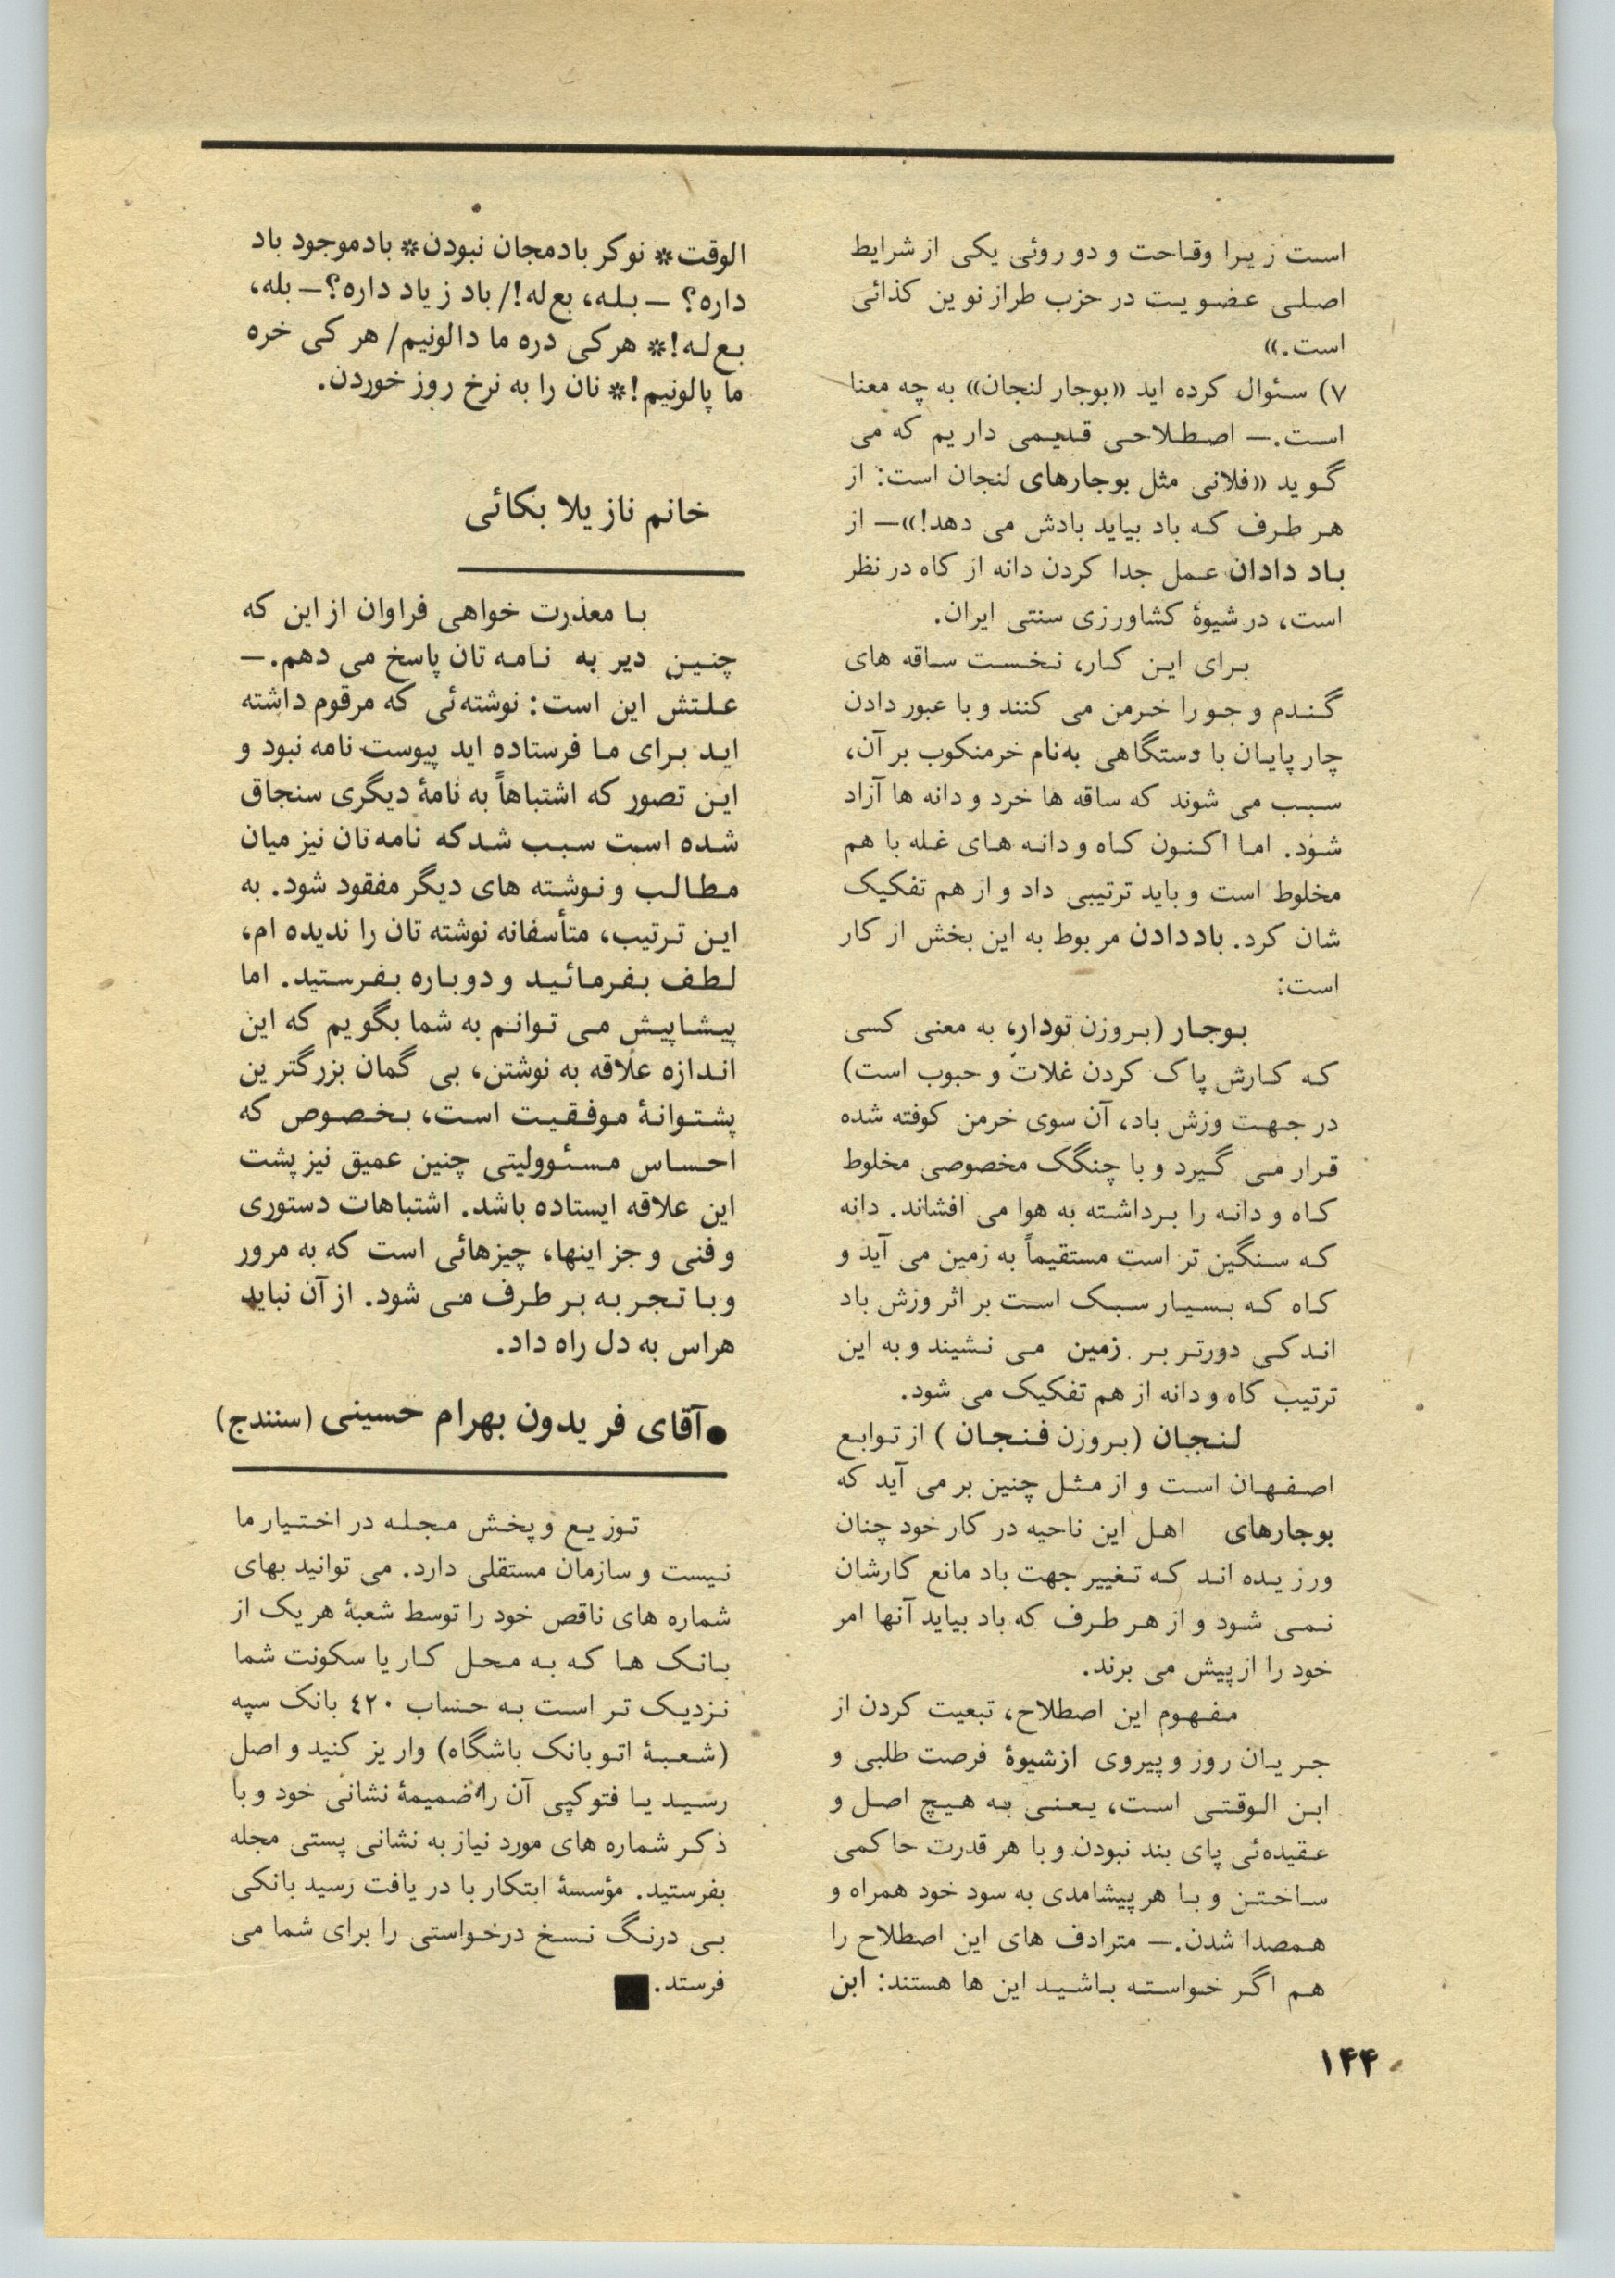 است زیرا وقاحت و دوروئی یکی از شرایط
اصلی عضویت در حزب طراز نوین کذائی
است.»
۷) سئوال کرده اید «بوجار لنجان» به چه معنا
است.— اصطلاحی قدیمی داریم که می
گوید «فلانی مثل بوجارهای لنجان است: از
هر طرف که باد بیاید بادش می دهد!»— از
باد دادان عمل جدا کردن دانه از کاه در نظر
است، در شیوۀ کشاورزی سنتی ایران.
برای این کار، نخست ساقه های
گندم و جو را خرمن می کنند و با عبور دادن
چارپایان با دستگاهی به‌نام خرمنکوب بر آن،
سبب می شوند که ساقه ها خرد و دانه ها آزاد
شود. اما اکنون کاه و دانه های غله با هم
مخلوط است و باید ترتیبی داد و از هم تفکیک
شان کرد. باددادن مربوط به این بخش از کار
است:
بوجار (بروزن تودار، به معنی کسی
که کارش پاک کردن غلات و حبوب است)
در جهت وزش باد، آن سوی خرمن کوفته شده
قرار می گیرد و با چنگک مخصوصی مخلوط
کاه و دانه را برداشته به هوا می افشاند. دانه
که سنگین تر است مستقیماً به زمین می آید و
کاه که بسیار سبک است بر اثر وزش باد
اندکی دورتر بر زمین می نشیند و به این
ترتیب کاه و دانه از هم تفکیک می شود.
لنجان (بروزن فنجان ) از توابع
اصفهان است و از مثل چنین برمی آید که
بوجارهای اهل این ناحیه در کار خود چنان
ورزیده اند که تغییر جهت باد مانع کارشان
نمی شود و از هر طرف که باد بیاید آنها امر
خود را از پیش می برند.
مفهوم این اصطلاح، تبعیت کردن از
جریان روز و پیروی ازشیوۀ فرصت طلبی و
ابن الوقتی است، یعنی به هیچ اصل و
عقیده‌ئی پای بند نبودن و با هر قدرت حاکمی
ساختن و با هر پیشامدی به سود خود همراه و
همصدا شدن.— مترادف های این اصطلاح را
هم اگر خواسته باشید این ها هستند: ابن
الوقت* نوکر بادمجان نبودن* بادموجود باد
داره؟ — بله، بع‌له!/ باد زیاد داره؟— بله،
بع‌له!* هرکی دره ما دالونیم/ هر کی خره
ما پالونیم!* نان را به نرخ روز خوردن.
خانم نازیلا بکائی
با معذرت خواهی فراوان از این که
چنین دیر به نامه تان پاسخ می دهم.—
علتش این است: نوشته‌ئی که مرقوم داشته
اید برای ما فرستاده اید پیوست نامه نبود و
این تصور که اشتباهاً به نامۀ دیگری سنجاق
شده است سبب شدکه نامه‌تان نیز میان
مطالب و نوشته های دیگر مفقود شود. به
این ترتیب، متأسفانه نوشته تان را ندیده ام،
لطف بفرمائید و دوباره بفرستید. اما
پیشاپیش می توانم به شما بگویم که این
اندازه علاقه به نوشتن، بی گمان بزرگترین
پشتوانۀ موفقیت است، بخصوص که
احساس مسئوولیتی چنین عمیق نیز پشت
این علاقه ایستاده باشد. اشتباهات دستوری
و فنی و جز اینها، چیزهائی است که به مرور
و با تجربه بر طرف می شود. از آن نباید
هراس به دل راه داد.
● آقای فریدون بهرام حسینی (سنندج)
توزیع و پخش مجله در اختیار ما
نیست و سازمان مستقلی دارد. می توانید بهای
شماره های ناقص خود را توسط شعبۀ هر یک از
بانک ها که به محل کار یا سکونت شما
نزدیک تر است به حساب ۴۲۰ بانک سپه
(شعبۀ اتوبانک باشگاه) واریز کنید و اصل
رسید یا فتوکپی آن را ضمیمۀ نشانی خود و با
ذکر شماره های مورد نیاز به نشانی پستی مجله
بفرستید. مؤسسۀ ابتکار با دریافت رسید بانکی
بی درنگ نسخ درخواستی را برای شما می
فرستد.
۱۴۴